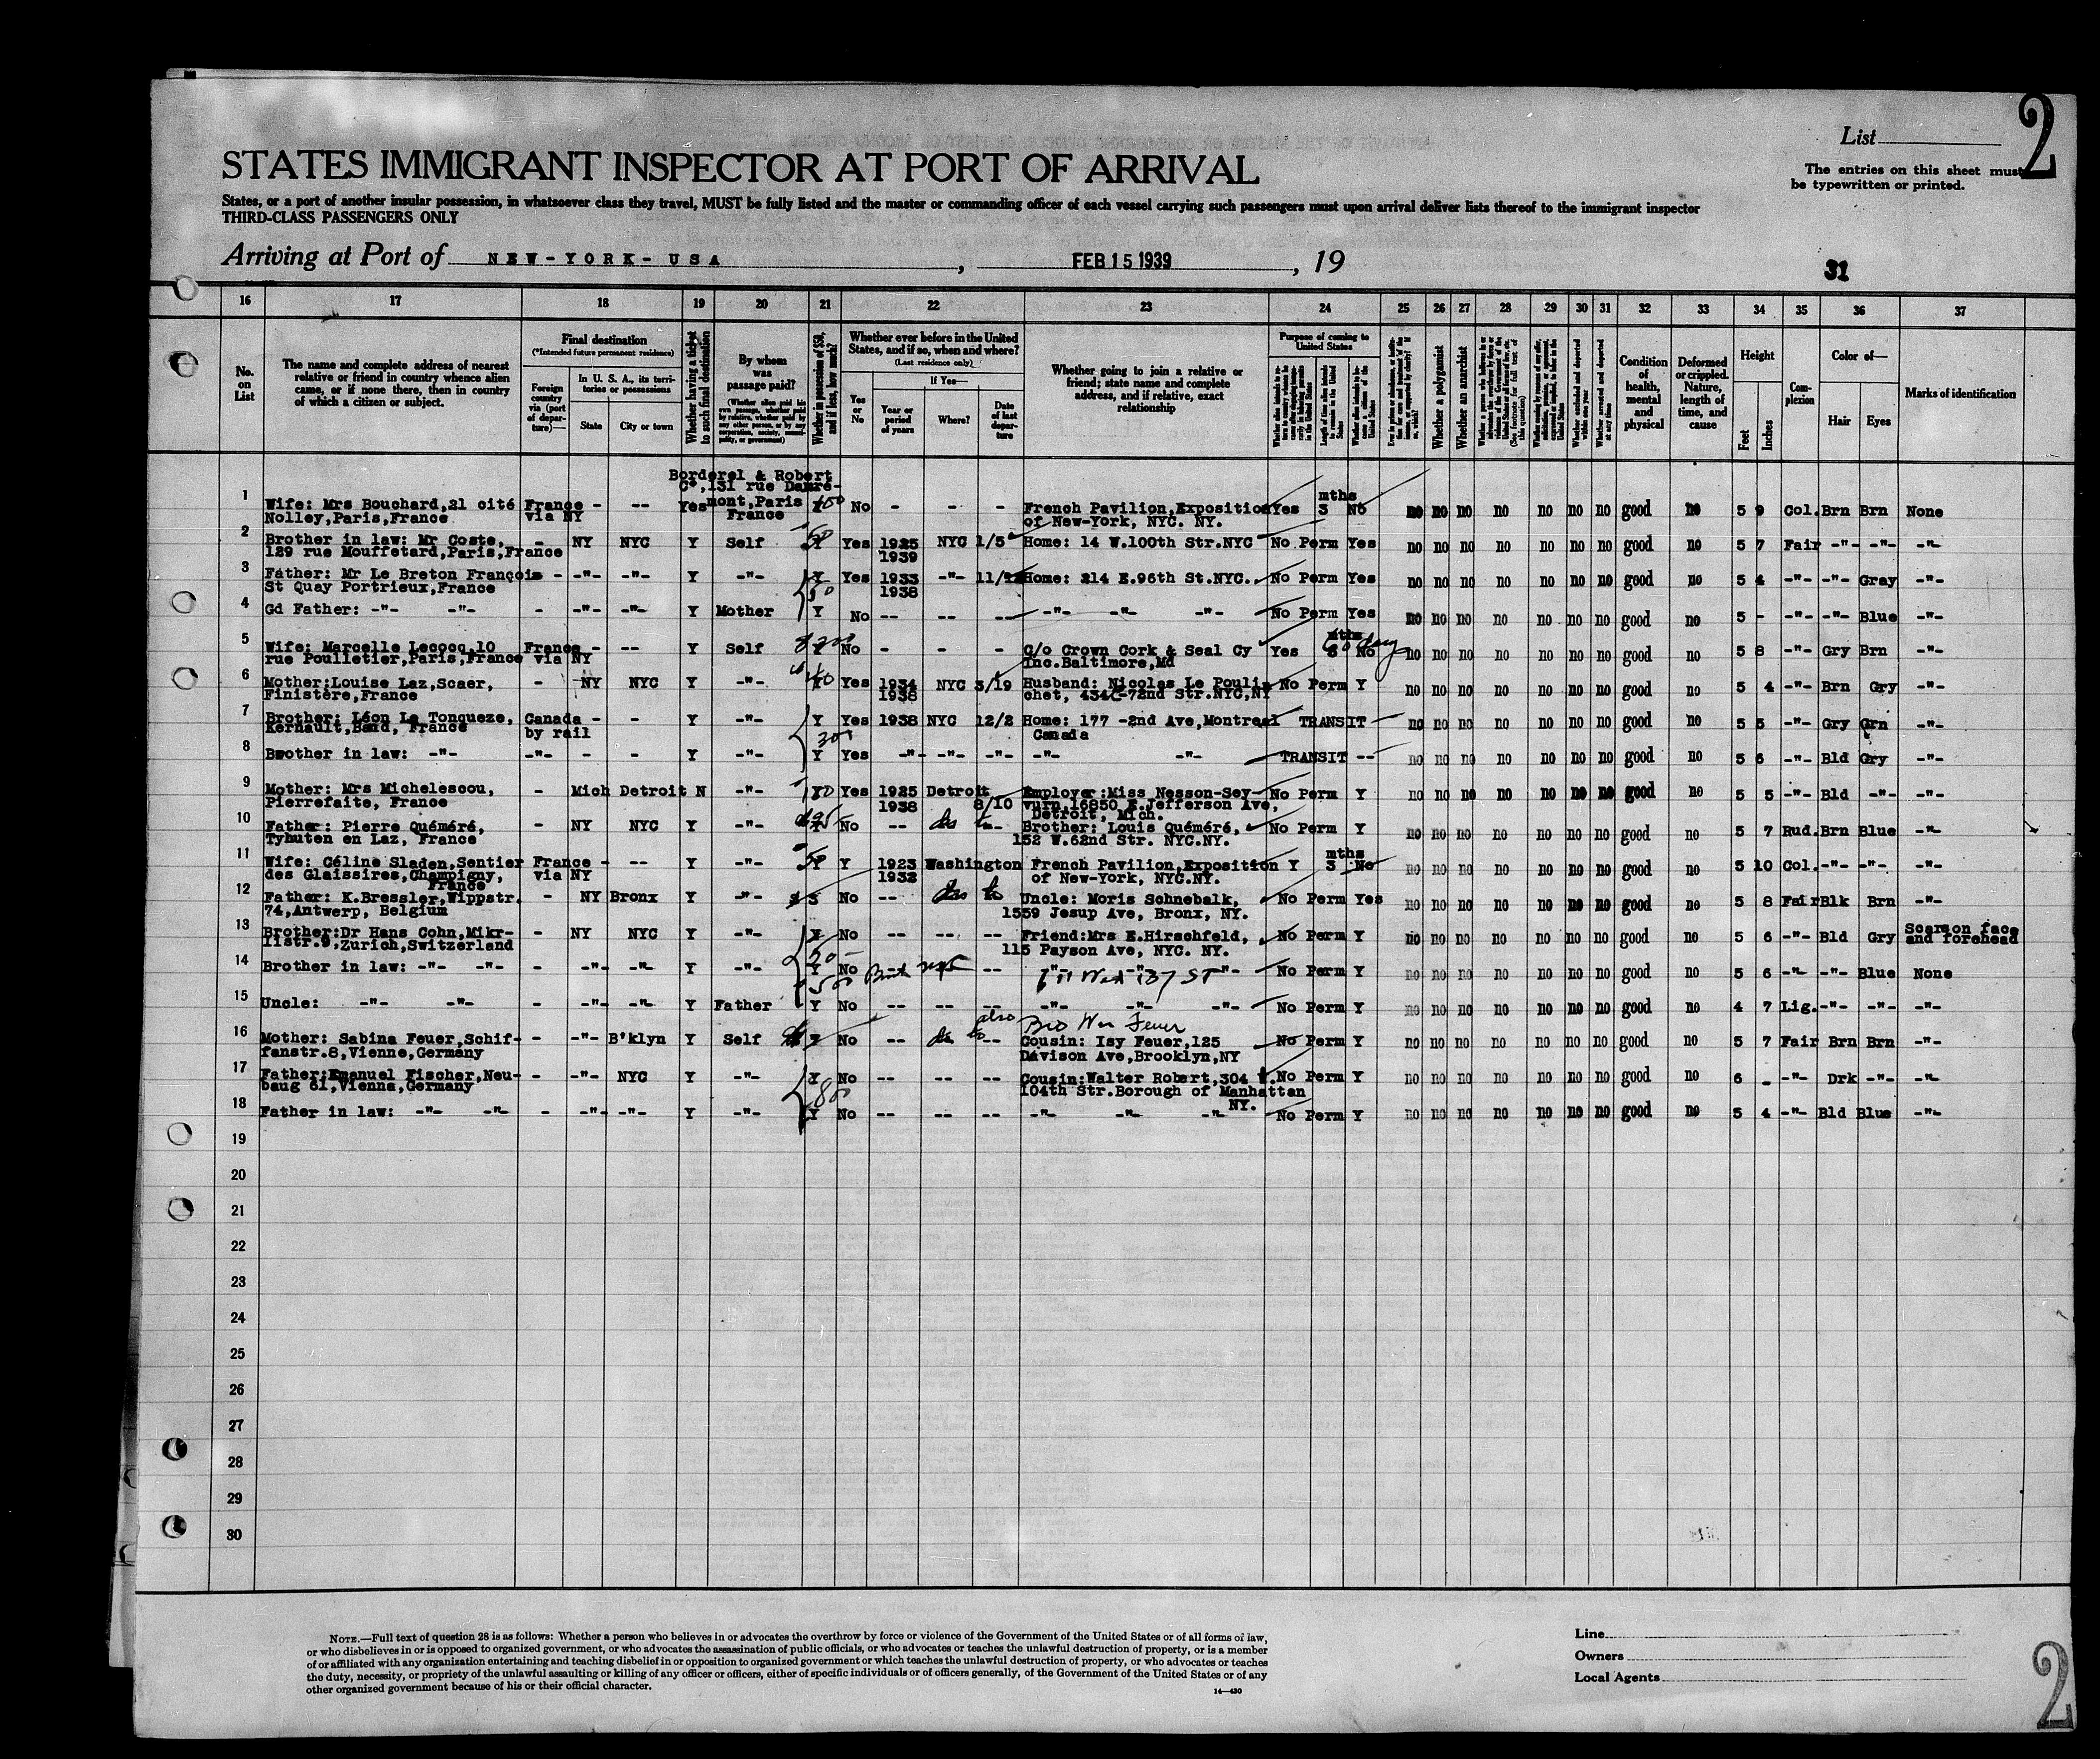 2
List
The entries on this sheet must
be typewritten or printed.
STATES IMMIGRANT INSPECTOR AT PORT OF ARRIVAL
States, or a port of another insular possession, in whatsoever class they travel, MUST be fully listed and the master or commanding officer of each vessel carrying such passengers must upon arrival deliver lists thereof to the immigrant inspector
THIRD-CLASS PASSENGERS ONLY
Arriving at Port of NEW-YORK-USA, FEB 15 1939, 19
31
16 17 18 19 20 21 22 23 24 25 26 27 28 29 30 31 32 33 34 35 36 37
No. on List
The name and complete address of nearest
relative or friend in country whence alien
came, or if none there, then in country
of which a citizen or subject.
Final destination
(*Intended future permanent residence)
Foreign country via (port of departure)—
In U. S. A., its territories or possessions
State
City or town
Whether having a ticket to such final destination
By whom was passage paid?
(Whether alien paid his own passage, whether paid by relative, whether paid by any other person, or by any corporation, society, municipality, or government)
Whether in possession of $50, and if less, how much?
Whether ever before in the United
States, and if so, when and where?
(Last residence only)
Yes or No
If Yes—
Year or period of years
Where?
Date of last departure
Whether going to join a relative or
friend; state name and complete
address, and if relative, exact
relationship
Purpose of coming to United States
Length of time alien intends to remain in the United States
Whether a polygamist
Whether an anarchist
Whether excluded and deported within one year
Whether arrested and deported at any time
Condition of health, mental and physical
Deformed or crippled. Nature, length of time, and cause
Height
Feet
Inches
Complexion
Color of—
Hair
Eyes
Marks of identification
Borderel & Robert
C°,131 rue Damré-
mont,Paris
France
1 Wife: Mrs Bouchard,21 cité France - -- Yes No - - - French Pavilion,Exposition Yes 3 mths No no no no no no no no good no 5 9 Col. Brn Brn None
Nolley,Paris,France via NY of New-York, NYC. NY.
2 Brother in law: Mr Coste, - NY NYC Y Self 50 Yes 1925 NYC 1/5 Home: 14 W.100th Str.NYC No Perm Yes no no no no no no no good no 5 7 Fair -"- -"- -"-
129 rue Mouffetard,Paris,France 1939
3 Father: Mr Le Breton François - -"- -"- Y -"- Y Yes 1933 -"- Home: 214 E.96th St.NYC. No Perm Yes no no no no no no no good no 5 4 -"- -"- Gray -"-
St Quay Portrieux,France 50 1938
4 Gd Father: -"- -"- - -"- -"- Y Mother Y No -- -- -- -"- -"- -"- No Perm Yes no no no no no no no good no 5 - -"- -"- Blue -"-
5 Wife: Marcelle Lecocq,10 France - -- Y Self No - - - C/o Crown Cork & Seal Cy Yes mths No no no no no no no no good no 5 8 -"- Gry Brn -"-
rue Poulletier,Paris,France via NY Inc.Baltimore,Md
6 Mother:Louise Laz,Scaer, - NY NYC Y -"- Yes 1934 NYC 3/19 Husband: Nicolas Le Poulin No Perm Y no no no no no no no good no 5 4 -"- Brn Gry -"-
Finistère,France 1938 chet, 434E-72nd Str.NYC,NY
7 Brother: Léon Le Tonqueze, Canada - - Y -"- Y Yes 1938 NYC 12/2 Home: 177 -2nd Ave,Montreal TRANSIT no no no no no no no good no 5 5 -"- Gry Grn -"-
Kernault,Baud, France by rail 300 Canada
8 Brother in law: -"- -"- - - Y -"- Y Yes -"- -"- -"- -"- -"- TRANSIT -- no no no no no no no good no 5 6 -"- Bld Gry -"-
9 Mother: Mrs Michelescou, - Mich Detroit N -"- Yes 1925 Detroit Employer:Miss Nesson-Sey- No Perm Y no no no no no no no good no 5 5 -"- Bld -"- -"-
Pierrefaite, France 1938 8/10 vurn,16850 E.Jefferson Ave,
Detroit, Mich.
10 Father: Pierre Quéméré, - NY NYC Y -"- No -- Brother: Louis Quéméré, No Perm Y no no no no no no no good no 5 7 Rud. Brn Blue -"-
Tybuten en Laz, France 152 W.62nd Str. NYC.NY.
11 Wife: Céline Sladen,Sentier France - -- Y -"- 50 Y 1923 Washington French Pavilion,Exposition Y 3 mths No no no no no no no no good no 5 10 Col. -"- -"- -"-
des Glaissires,Champigny, via NY 1932 of New-York, NYC.NY.
France
12 Father: K.Bressler,Wippstr. - NY Bronx Y -"- No -- Uncle: Moris Schnebalk, No Perm Yes no no no no no no no good no 5 8 Fair Blk Brn -"-
74,Antwerp, Belgium 1559 Jesup Ave, Bronx, NY.
13 Brother:Dr Hans Cohn,Mikr- - NY NYC Y -"- Y No -- -- -- Friend:Mrs E.Hirschfeld, No Perm Y no no no no no no no good no 5 6 -"- Bld Gry Scarson face
listr.9,Zurich,Switzerland 115 Payson Ave, NYC. NY. and forehead
14 Brother in law: -"- -"- - -"- -"- Y -"- Y No -- No Perm Y no no no no no no no good no 5 6 -"- -"- Blue None
15 Uncle: -"- -"- - -"- -"- Y Father Y No -- -- -- -"- -"- -"- No Perm Y no no no no no no no good no 4 7 Lig. -"- -"- -"-
also Bro Feuer
16 Mother: Sabina Feuer,Schif- - -"- B'klyn Y Self No -- -- Cousin: Isy Feuer,125 No Perm Y no no no no no no no good no 5 7 Fair Brn Brn -"-
fanstr.8,Vienne,Germany Davison Ave,Brooklyn,NY
17 Father:Emanuel Fischer,Neu- - -"- NYC Y -"- Y No -- -- -- Cousin:Walter Robert,304 W. No Perm Y no no no no no no no good no 6 - -"- Drk -"- -"-
baug 61,Vienna,Germany 800 104th Str.Borough of Manhattan
NY.
18 Father in law: -"- -"- - -"- -"- Y -"- Y No -- -- -- -"- -"- -"- No Perm Y no no no no no no no good no 5 4 -"- Bld Blue -"-
19
20
21
22
23
24
25
26
27
28
29
30
NOTE.—Full text of question 28 is as follows: Whether a person who believes in or advocates the overthrow by force or violence of the Government of the United States or of all forms of law,
or who disbelieves in or is opposed to organized government, or who advocates the assassination of public officials, or who advocates or teaches the unlawful destruction of property, or is a member
of or affiliated with any organization entertaining and teaching disbelief in or opposition to organized government or which teaches the unlawful destruction of property, or who advocates or teaches
the duty, necessity, or propriety of the unlawful assaulting or killing of any officer or officers, either of specific individuals or of officers generally, of the Government of the United States or of any
other organized government because of his or their official character.
14—430
Line
Owners
Local Agents
2